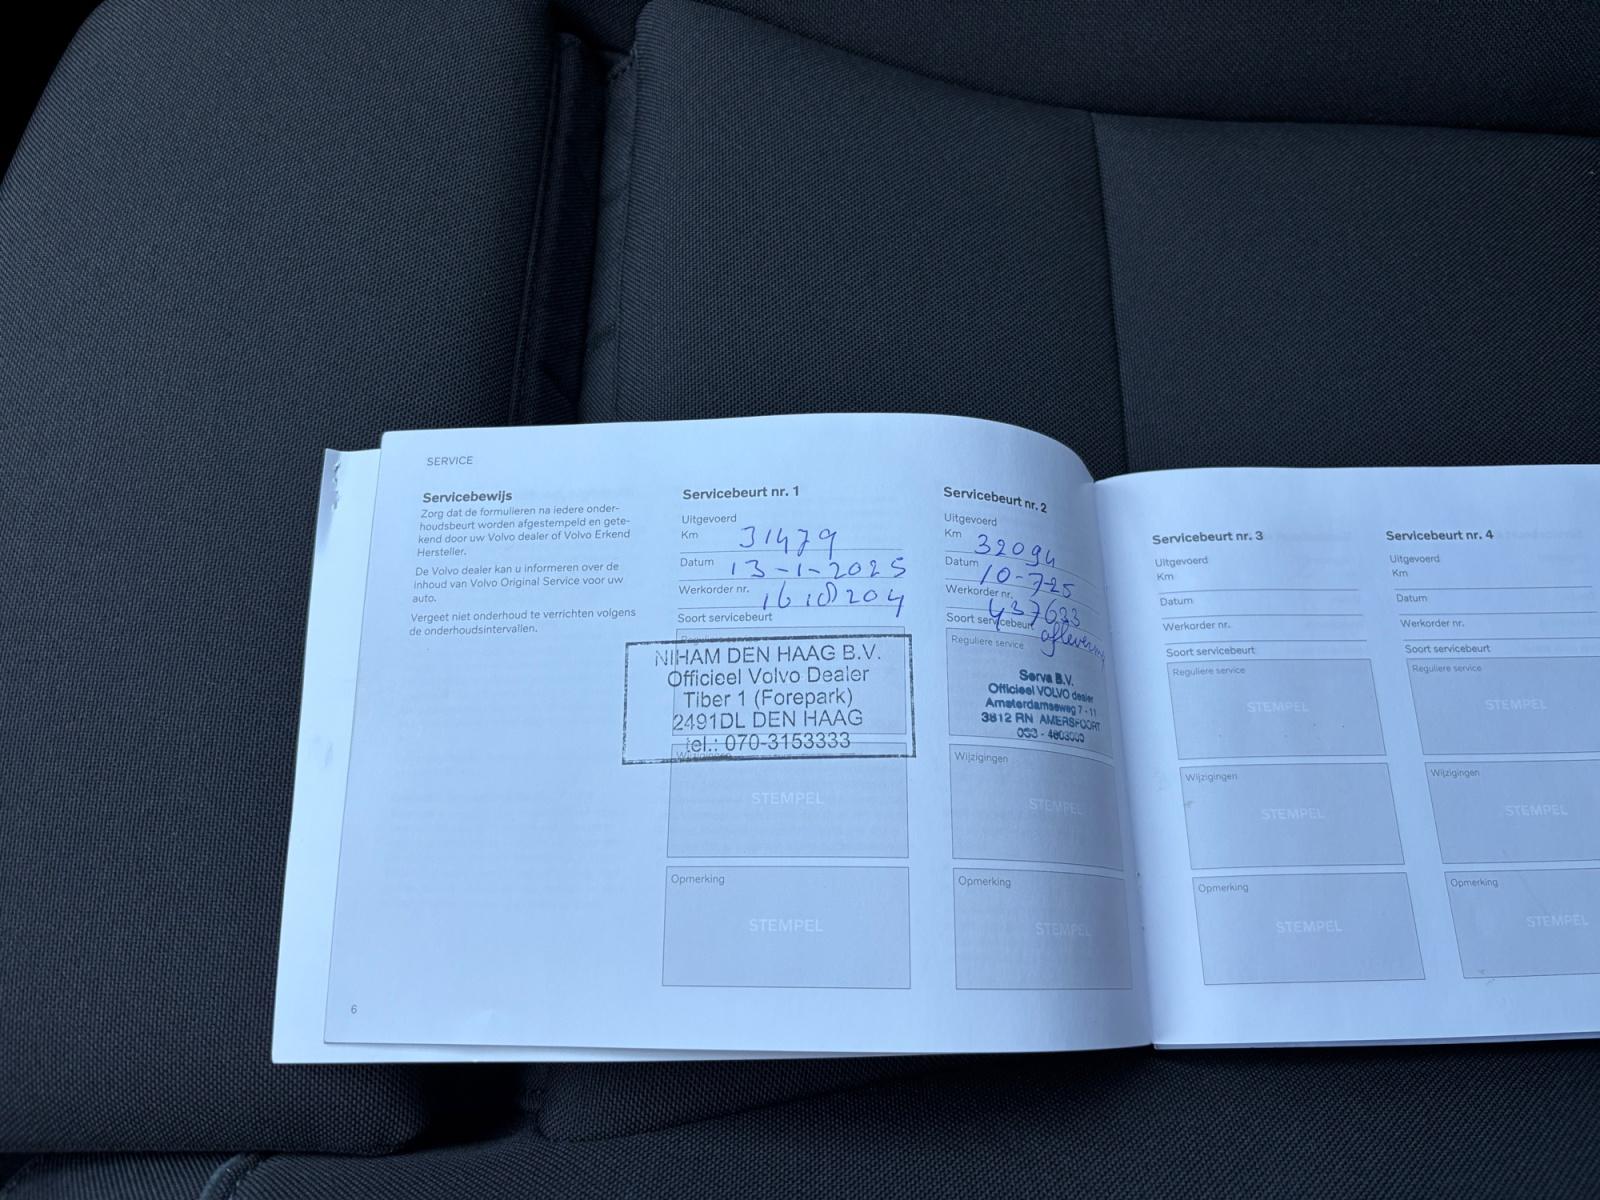 SERVICE
Servicebewijs
Zorg dat de formulieren na iedere onder-
houdsbeurt worden afgestempeld en gete-
kend door uw Volvo dealer of Volvo Erkend
Hersteller.
De Volvo dealer kan u informeren over de
inhoud van Volvo Original Service voor uw
auto.
Vergeet niet onderhoud te verrichten volgens
de onderhoudsintervallen.
6
Servicebeurt nr. 1
Uitgevoerd
Km 31479
Datum 13-1-2025
Werkorder nr.
Soort servicebeurt
Reguliere service
NIHAM DEN HAAG B.V.
Officieel Volvo Dealer
Tiber 1 (Forepark)
2491DL DEN HAAG
tel.: 070-3153333
Wijzigingen
STEMPEL
Opmerking
STEMPEL
Servicebeurt nr. 2
Uitgevoerd
Km 32094
Datum 10-7-25
Werkorder nr. 437623
Soort servicebeurt aflevering
Reguliere service
Serva B.V.
Officieel VOLVO dealer
Amsterdamseweg 7 - 11
3812 RN AMERSFOORT
Wijzigingen
STEMPEL
Opmerking
STEMPEL
Servicebeurt nr. 3
Uitgevoerd
Km
Datum
Werkorder nr.
Soort servicebeurt
Reguliere service
STEMPEL
Wijzigingen
STEMPEL
Opmerking
STEMPEL
Servicebeurt nr. 4
Uitgevoerd
Km
Datum
Werkorder nr.
Soort servicebeurt
Reguliere service
STEMPEL
Wijzigingen
STEMPEL
Opmerking
STEMPEL